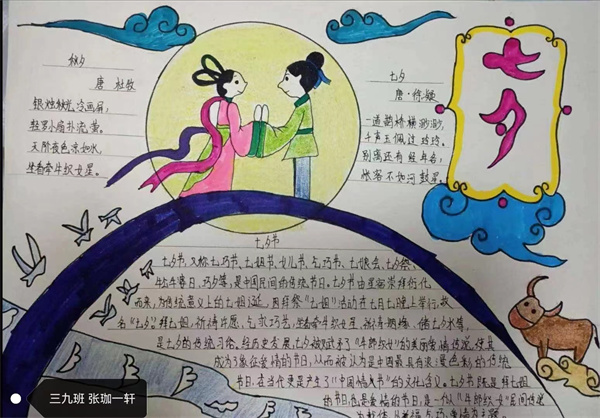 秋夕
唐 杜牧
银烛秋光冷画屏,
轻罗小扇扑流萤。
天阶夜色凉如水,
坐看牵牛织女星。
七夕
唐·徐凝
一道鹊桥横渺渺,
千声玉佩过玲玲。
别离还有经年客,
怅望不如河鼓星。
七夕
七夕节
七夕节,又称七巧节、七姐节、女儿节、乞巧节、七娘会、七夕祭、
牛公牛婆日、巧夕等,是中国民间的传统节日。七夕节由星宿崇拜衍化
而来,为传统意义上的七姐诞,因拜祭“七姐”活动在七月七晚上举行,故
名“七夕”。拜七姐,祈祷许愿,乞求巧艺,坐看牵牛织女星,祈祷姻缘、储七夕水等,
是七夕的传统习俗。经历史发展,七夕被赋予了“牛郎织女”的美丽爱情传说,使其
成为了象征爱情的节日,从而被认为是中国最具有浪漫色彩的传统
节日,在当代更是产生了“中国情人节”的文化含义。七夕节既是拜七姐
的节日,也是爱情的节日,是一个以“牛郎织女”民间传说
三九班 张珈一轩